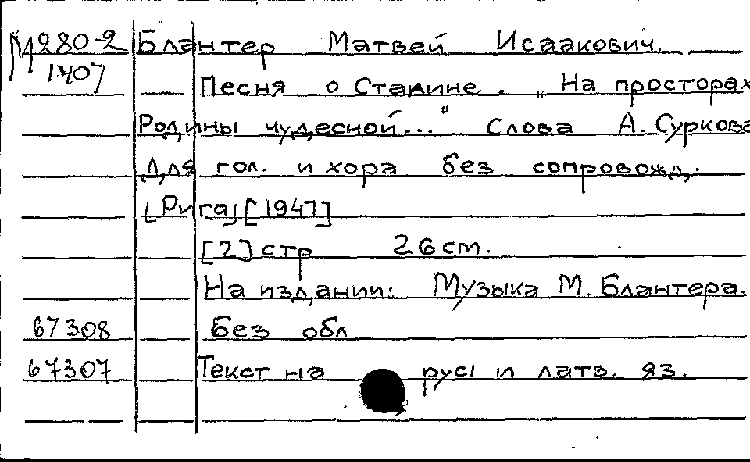 М280-2 Блантер Матвей Исаакович.
1407 — Песня о Сталине. „На просторах
Родины чудесной..." Слова А. Суркова
Для гол. и хора без сопровожд.
[Рига] [1947]
[2] стр 26 см.
На издании: Музыка М. Блантера.
67308 без обл
67307 Текст на рус и латв. яз.